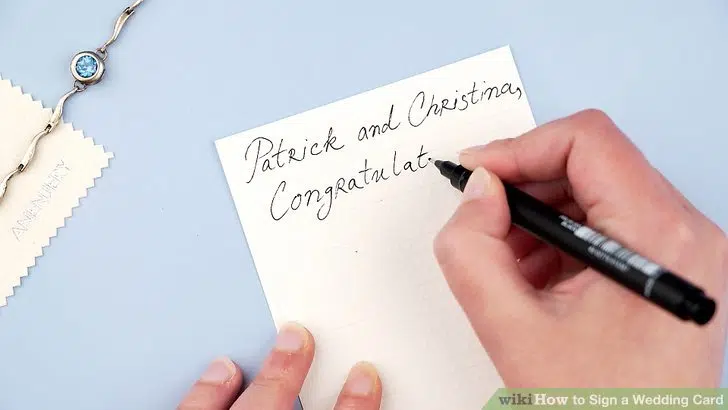 Patrick and Christina,
Congratulat
wikiHow to Sign a Wedding Card